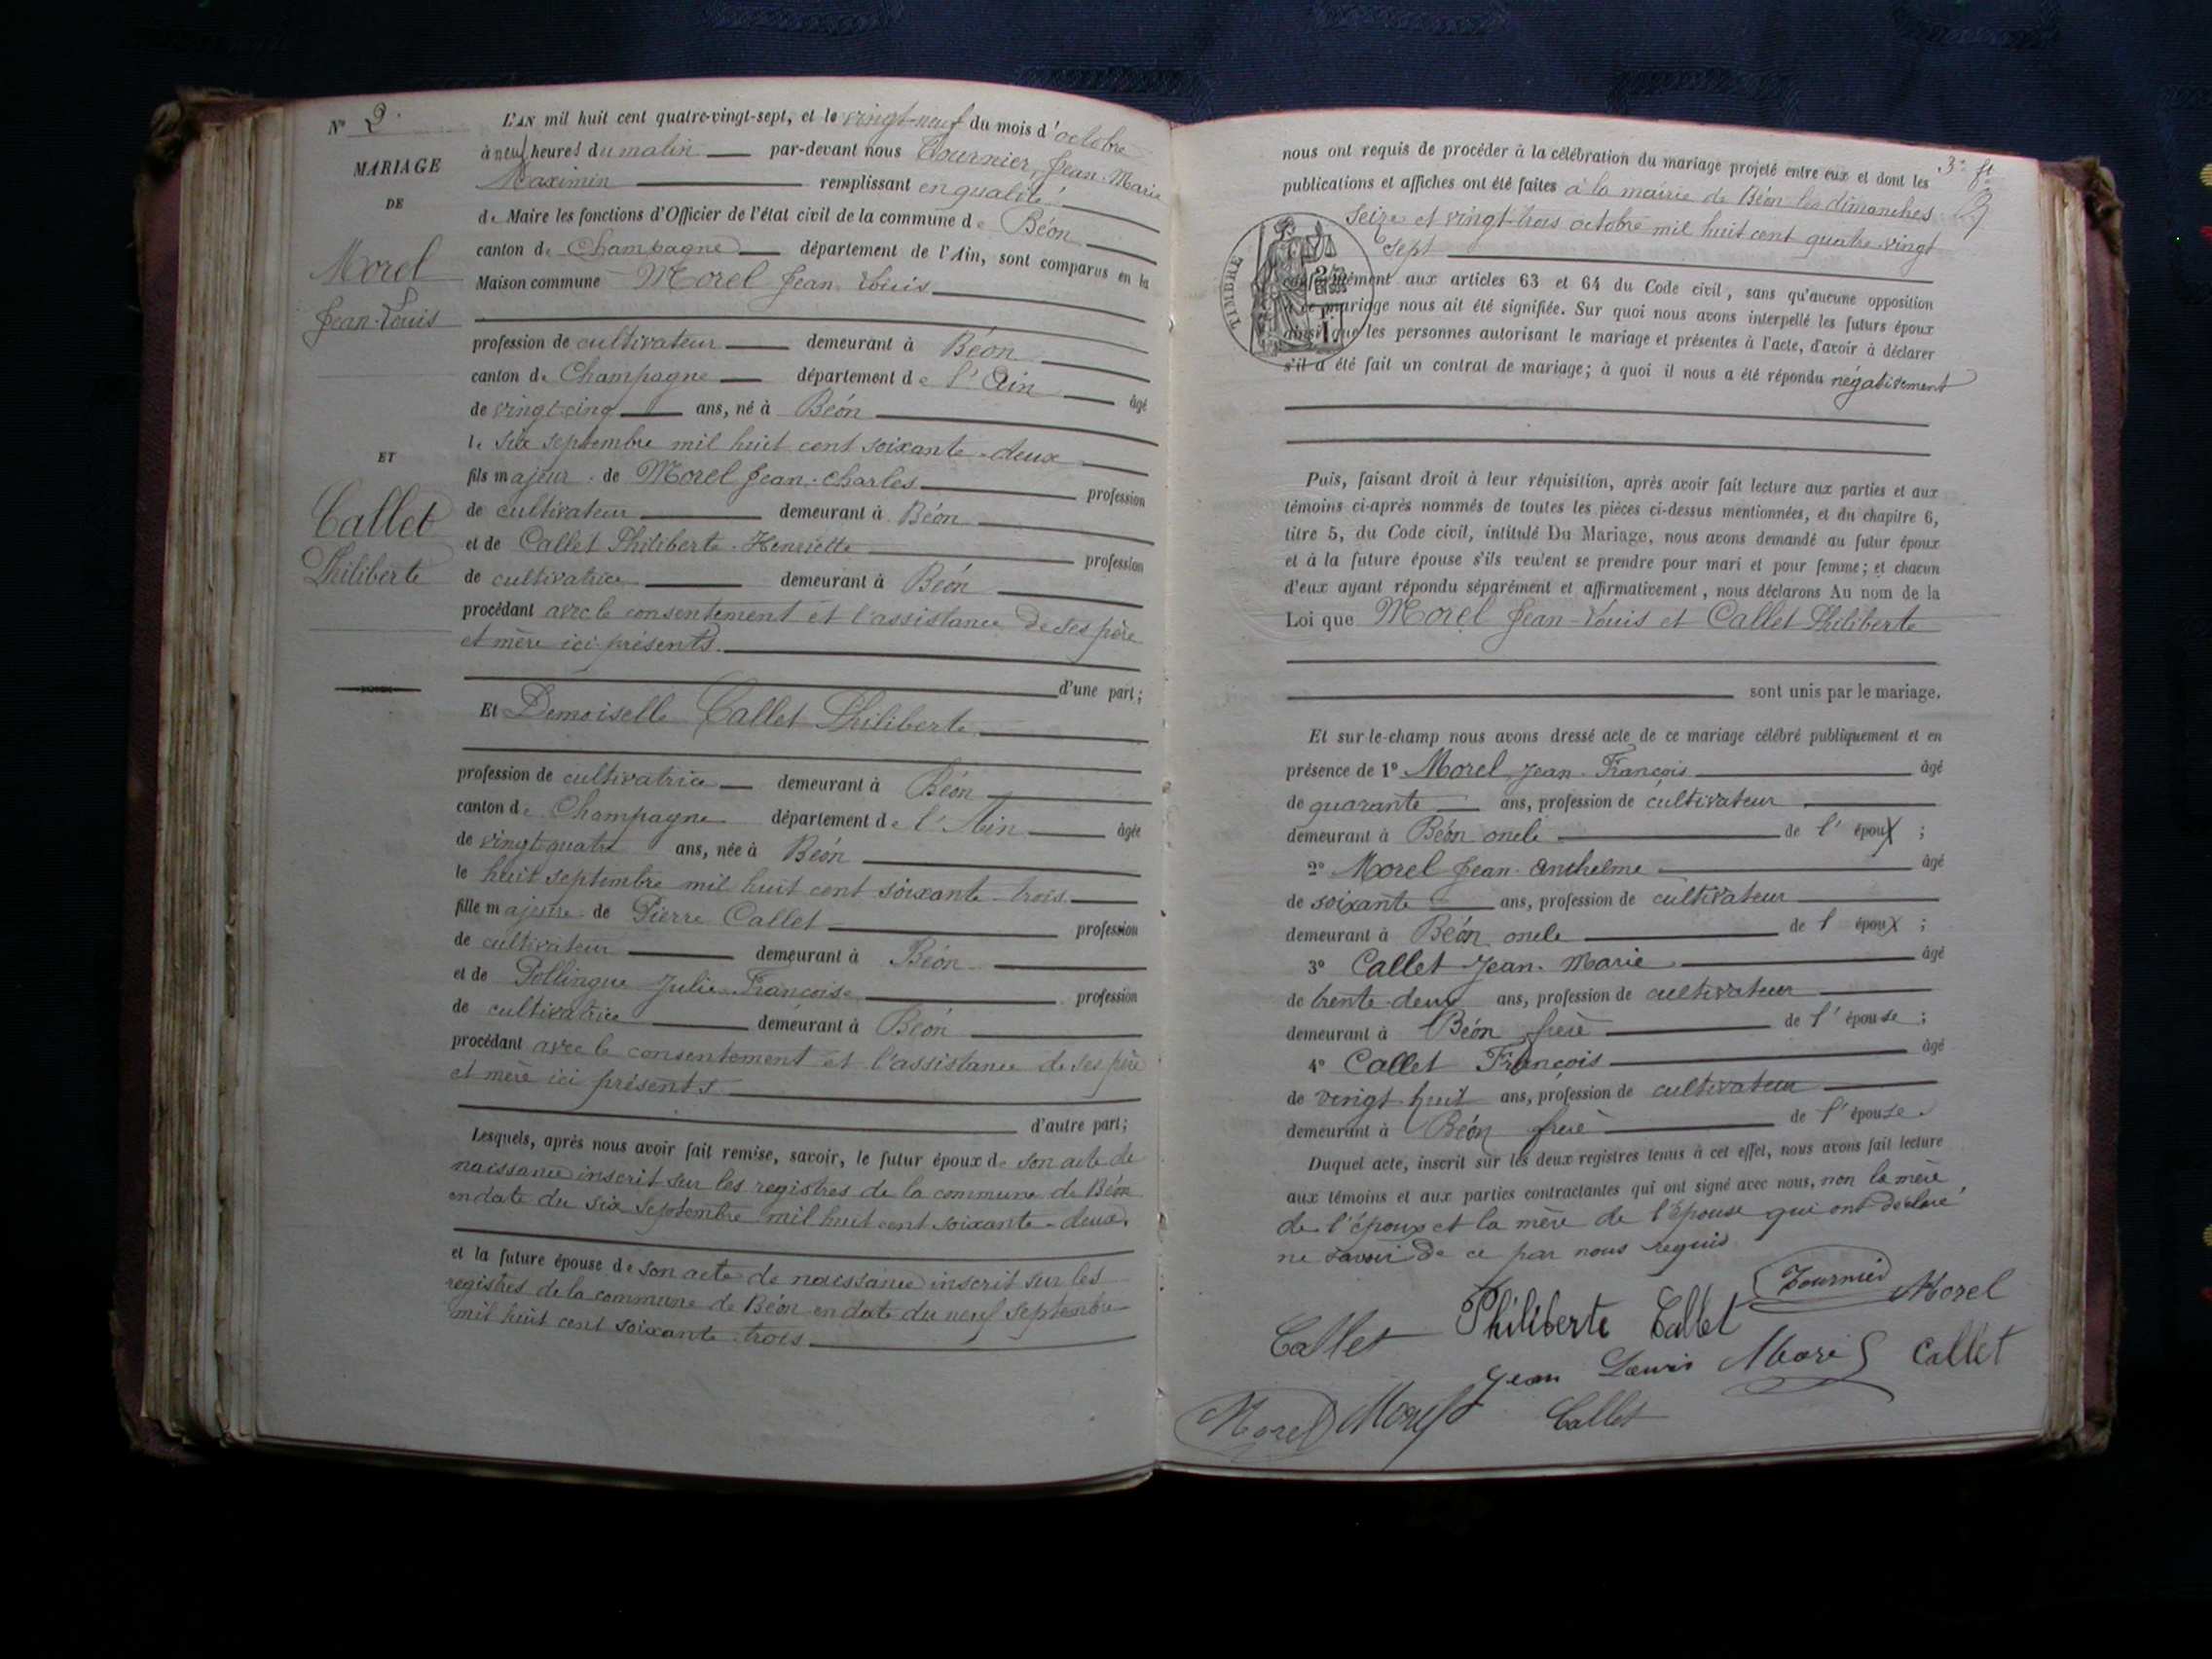 N° 2.
MARIAGE
DE
Morel
Jean-Louis
ET
Callet
Philiberte
L'AN mil huit cent quatre-vingt-sept, et le vingt-neuf du mois d'octobre
à neuf heures du matin par-devant nous Tournier, Jean-Marie
Maximin remplissant en qualité
de Maire les fonctions d'Officier de l'état civil de la commune de Béon
canton de Champagne département de l'Ain, sont comparus en la
Maison commune Morel Jean-Louis
profession de cultivateur demeurant à Béon
canton de Champagne département de l'Ain âgé
de vingt-cinq ans, né à Béon
le six septembre mil huit cent soixante-deux
fils majeur de Morel Jean-Charles profession
de cultivateur demeurant à Béon
et de Callet Philiberte-Henriette profession
de cultivatrice demeurant à Béon
procédant avec le consentement et l'assistance de ses père
et mère ici présents.
d'une part;
Et Demoiselle Callet Philiberte
profession de cultivatrice demeurant à Béon
canton de Champagne département de l'Ain âgée
de vingt-quatre ans, née à Béon
le huit septembre mil huit cent soixante-trois
fille majeure de Pierre Callet profession
de cultivateur demeurant à Béon
et de Pollingue Julie-Françoise profession
de cultivatrice demeurant à Béon
procédant avec le consentement et l'assistance de ses père
et mère ici présents
d'autre part;
Lesquels, après nous avoir fait remise, savoir, le futur époux de son acte de
naissance inscrit sur les registres de la commune de Béon
en date du six septembre mil huit cent soixante-deux.
et la future épouse de son acte de naissance inscrit sur les
registres de la commune de Béon en date du neuf septembre
mil huit cent soixante-trois
3e ft
nous ont requis de procéder à la célébration du mariage projeté entre eux et dont les
publications et affiches ont été faites à la mairie de Béon les dimanches
seize et vingt-trois octobre mil huit cent quatre-vingt
sept
TIMBRE
conformément aux articles 63 et 64 du Code civil, sans qu'aucune opposition
à ce mariage nous ait été signifiée. Sur quoi nous avons interpellé les futurs époux
ainsi que les personnes autorisant le mariage et présentes à l'acte, d'avoir à déclarer
s'il a été fait un contrat de mariage; à quoi il nous a été répondu négativement
Puis, faisant droit à leur réquisition, après avoir fait lecture aux parties et aux
témoins ci-après nommés de toutes les pièces ci-dessus mentionnées, et du chapitre 6,
titre 5, du Code civil, intitulé Du Mariage, nous avons demandé au futur époux
et à la future épouse s'ils veulent se prendre pour mari et pour femme; et chacun
d'eux ayant répondu séparément et affirmativement, nous déclarons Au nom de la
Loi que Morel Jean-Louis et Callet Philiberte
sont unis par le mariage.
Et sur-le-champ nous avons dressé acte de ce mariage célébré publiquement et en
présence de 1° Morel Jean-François âgé
de quarante ans, profession de cultivateur
demeurant à Béon oncle de l'époux ;
2° Morel Jean-Anthelme âgé
de soixante ans, profession de cultivateur
demeurant à Béon oncle de l époux ;
3° Callet Jean-Marie âgé
de trente-deux ans, profession de cultivateur
demeurant à Béon frère de l'épouse ;
4° Callet François âgé
de vingt-huit ans, profession de cultivateur
demeurant à Béon frère de l'épouse.
Duquel acte, inscrit sur les deux registres tenus à cet effet, nous avons fait lecture
aux témoins et aux parties contractantes qui ont signé avec nous, non la mère
de l'époux et la mère de l'épouse qui ont déclaré
ne savoir de ce par nous requis
Tournier Morel
Callet Philiberte Callet
Jean Louis Morel Callet
Morel Morel Callet